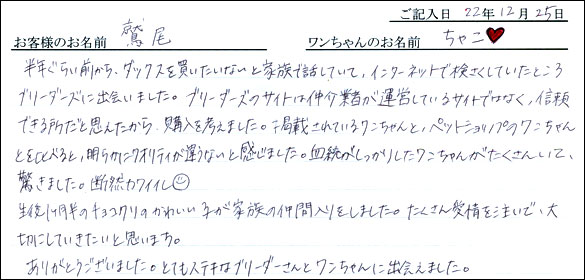 ご記入日 22年12月25日
お客様のお名前 鷲尾 ワンちゃんのお名前 ちゃこ♥
半年ぐらい前から、ダックスを買いたいなと家族で話していて、インターネットで検さくしていたところ
ブリーダーズに出会いました。ブリーダーズのサイトは仲介業者が運営しているサイトではなく、信頼
できる所だと思えたから、購入を考えました。掲載されているワンちゃんと、ペットショップのワンちゃん
とを比べると、明らかにクオリティが違うなと感じました。血統がしっかりしたワンちゃんがたくさんいて、
驚きました。断然カワイイし☺
生後1ヶ月半のチョコクリのかわいい子が家族の仲間入りをしました。たくさん愛情を注いで、大
切にしていきたいと思いまち。
ありがとうございました。とてもステキなブリーダーさんとワンちゃんに出会えました。